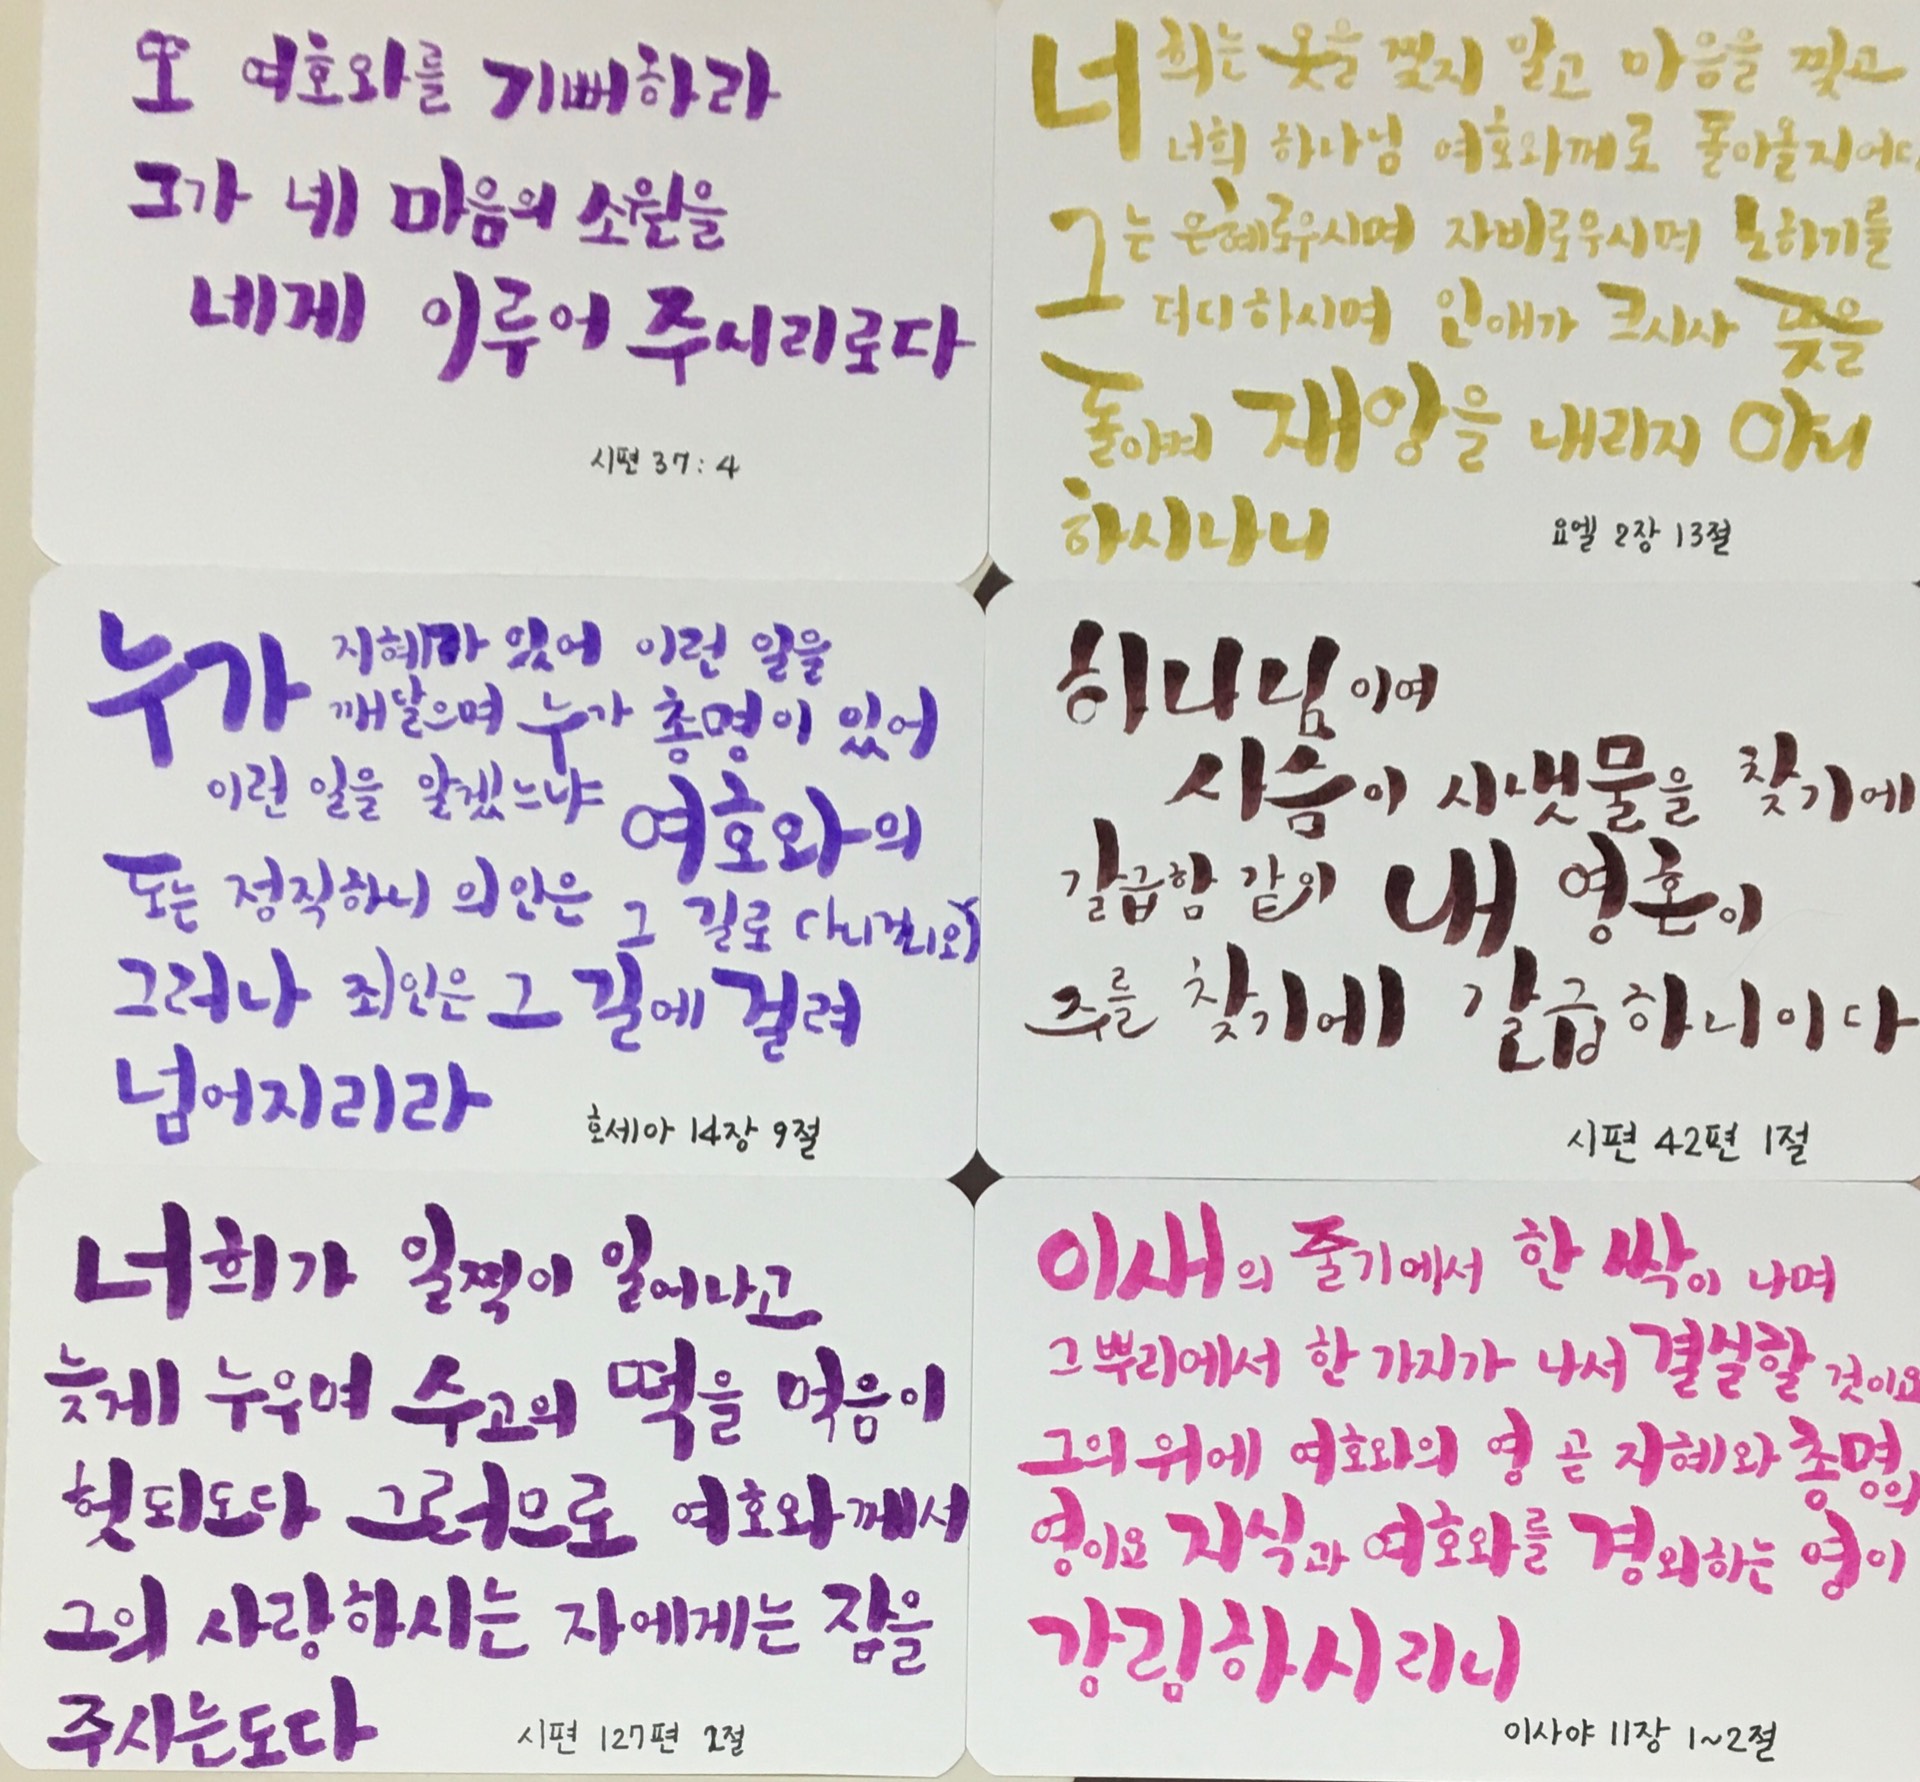 또 여호와를 기뻐하라
그가 네 마음의 소원을
네게 이루어 주시리로다
시편 37:4
너희는 옷을 찢지 말고 마음을 찢고
너희 하나님 여호와께로 돌아올지어다
그는 은혜로우시며 자비로우시며 노하기를
더디하시며 인애가 크시사 뜻을
돌이켜 재앙을 내리지 아니
하시나니
요엘 2장 13절
누가 지혜가 있어 이런 일을
깨달으며 누가 총명이 있어
이런 일을 알겠느냐 여호와의
도는 정직하니 의인은 그 길로 다니거니와
그러나 죄인은 그 길에 걸려
넘어지리라
호세아 14장 9절
하나님이여
사슴이 시냇물을 찾기에
갈급함 같이 내 영혼이
주를 찾기에 갈급하니이다
시편 42편 1절
너희가 일찍이 일어나고
늦게 누우며 수고의 떡을 먹음이
헛되도다 그러므로 여호와께서
그의 사랑하시는 자에게는 잠을
주시는도다
시편 127편 2절
이새의 줄기에서 한 싹이 나며
그 뿌리에서 한 가지가 나서 결실할 것이요
그의 위에 여호와의 영 곧 지혜와 총명의
영이요 지식과 여호와를 경외하는 영이
강림하시리니
이사야 11장 1~2절